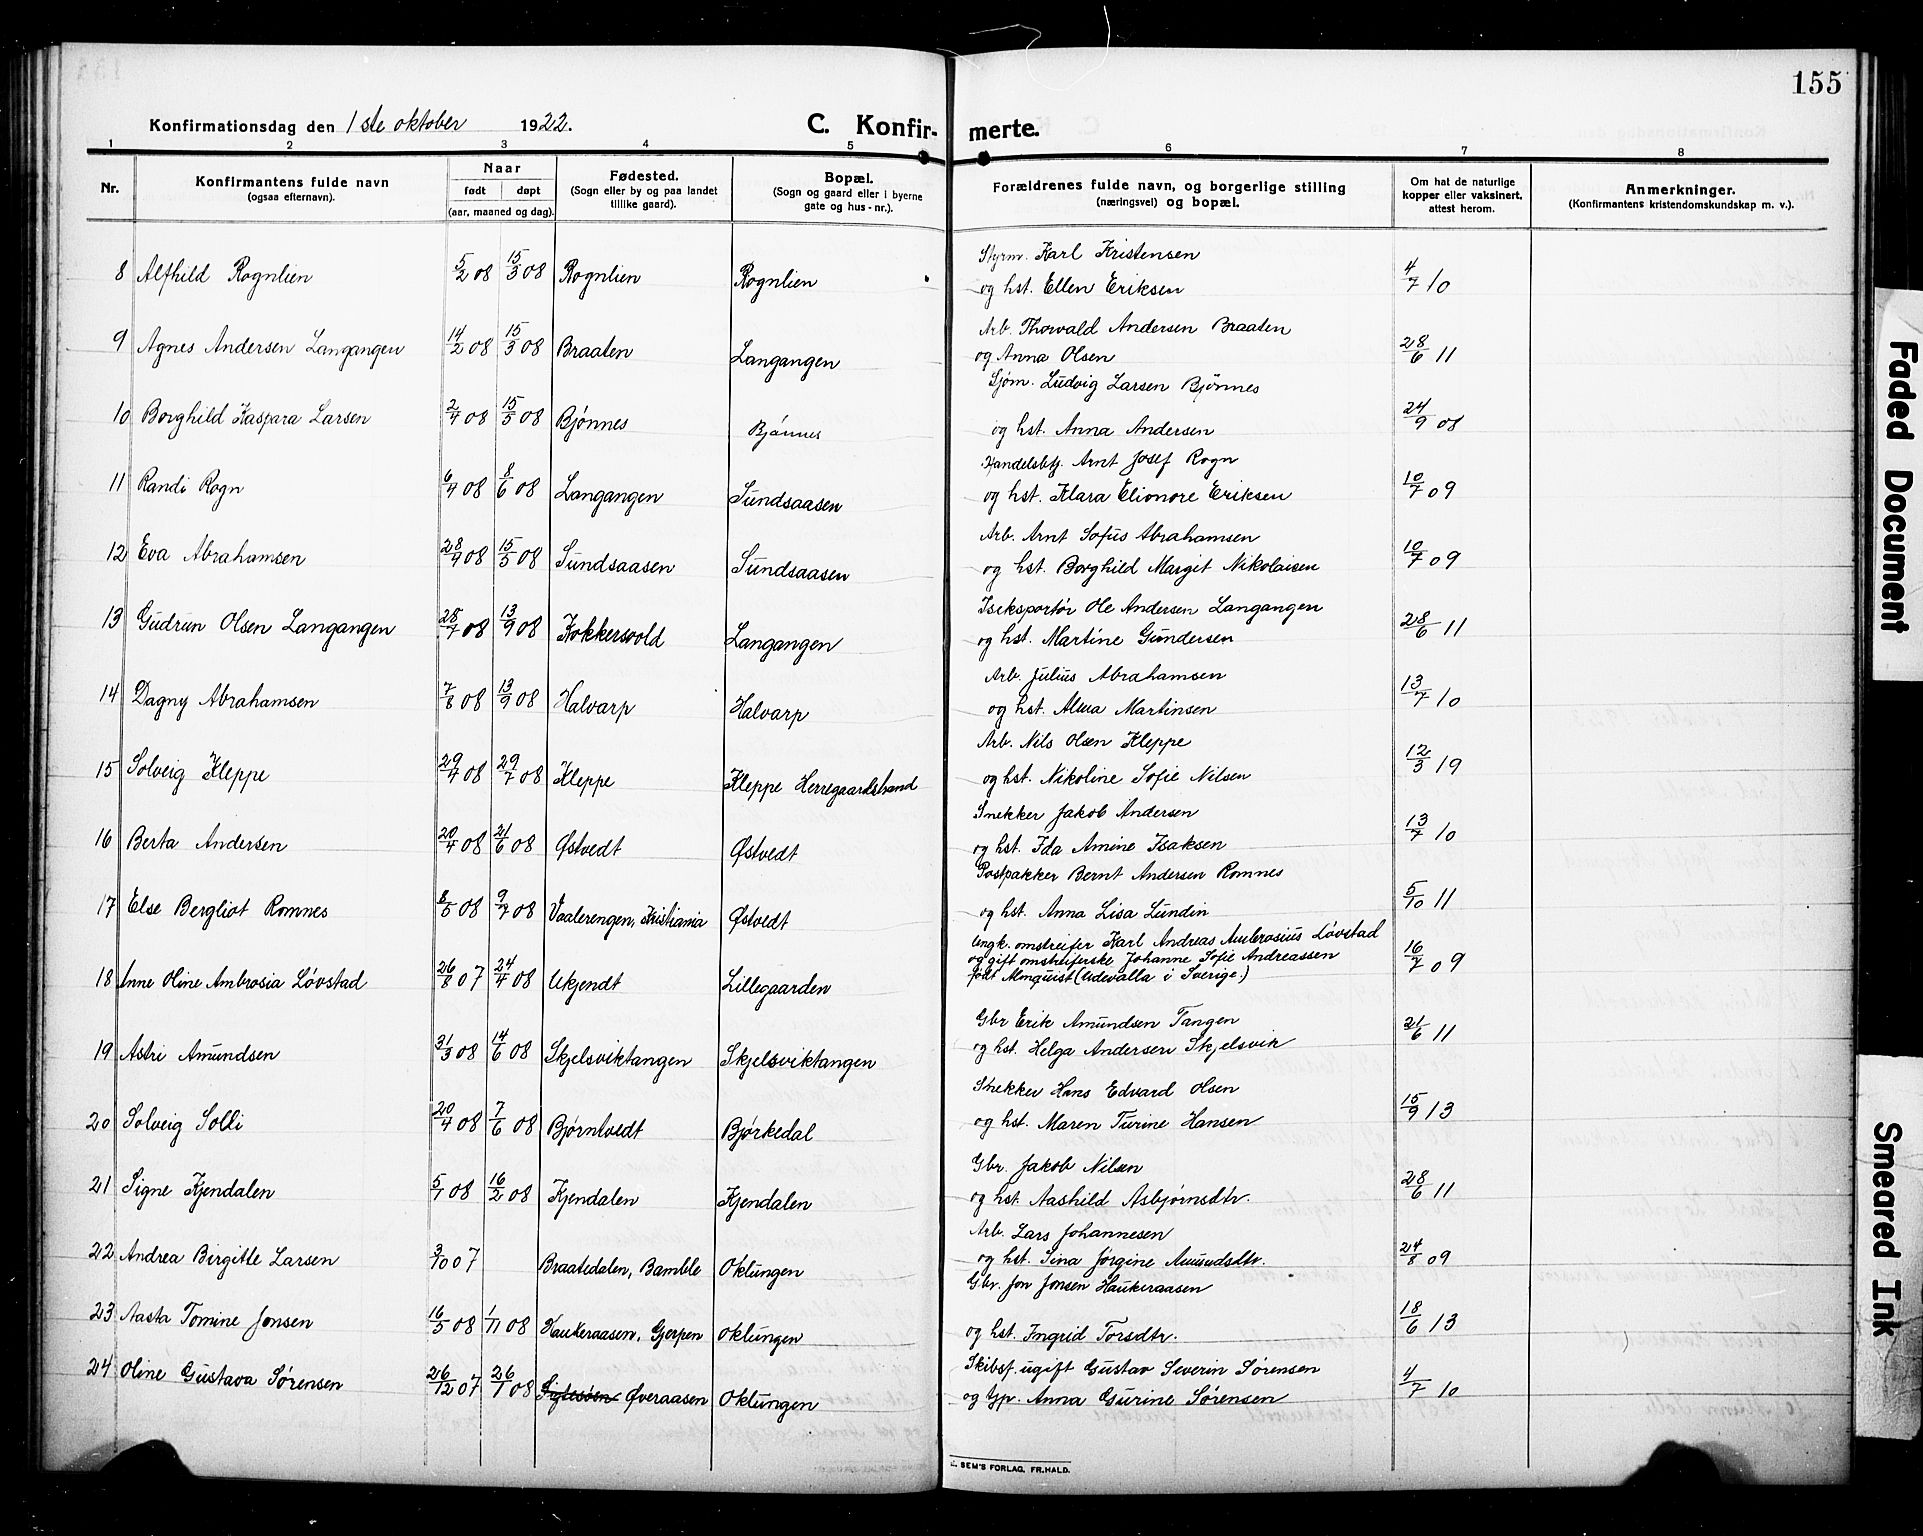 155
Konfirmationsdag den 1ste oktober 1922. C. Konfir- merte.
1 2 3 4 5 6 7 8
Nr. Konfirmantens fulde navn (ogsaa efternavn). Naar født døpt (aar, maaned og dag). Fødested. (Sogn eller by og paa landet tillike gaard). Bopæl. (Sogn og gaard eller i byerne gate og hus-nr.). Forældrenes fulde navn, og borgerlige stilling (næringsvei) og bopæl. Om hat de naturlige kopper eller vaksinert, attest herom. Anmerkninger. (Konfirmantens kristendomskundskap m. v.).
8 Alfhild Rognlien 5/2 08 15/3 08 Rognlien Rognlien Styrm. Karl Kristensen
og hst. Ellen Eriksen 4/7 10
9 Agnes Andersen Langangen 14/2 08 15/3 08 Braaten Langangen Arb. Thorvald Andersen Braaten
og Anna Olsen 28/6 11
10 Borghild Kaspara Larsen 2/4 08 15/5 08 Bjønnes Bjønnes Sjøm. Ludvig Larsen Bjönnes
og hst. Anna Andersen 24/9 08
11 Randi Rogn 6/4 08 8/6 08 Langangen Sundsaasen Handelsbtj. Arnt Josef Rogn
og hst. Klara Elionore Eriksen 10/7 09
12 Eva Abrahamsen 28/4 08 15/5 08 Sundsaasen Sundsaasen Arb. Arnt Sofus Abrahamsen
og hst. Borghild Margit Nikolaisen 10/7 09
13 Gudrun Olsen Langangen 25/7 08 13/9 08 Kokkersvold Langangen Iseksportör Ole Andersen Langangen
og hst. Martine Gundersen 28/6 11
14 Dagny Abrahamsen 7/8 08 13/9 08 Halvarp Halvarp Arb. Julius Abrahamsen
og hst. Alma Martinsen 13/7 10
15 Solveig Kleppe 29/4 08 29/7 08 Kleppe Kleppe Herregaardstrand Arb. Nils Olsen Kleppe
og hst. Nikoline Sofie Nilsen 12/3 19
16 Berta Andersen 20/4 08 21/6 08 Østvedt Østvedt Snekker Jakob Andersen
og hst. Ida Amine Isaksen 13/7 10
17 Else Bergliot Romnes 8/5 08 9/7 08 Vaalerengen, Kristiania Østvedt Postpakker Bernt Andersen Romnes
og hst. Anna Lisa Lundin 5/10 11
18 Anne Oline Ambrosia Løvstad 26/8 07 24/4 08 Ukjendt Lillegaarden Ungk. omstreifer Karl Andreas Ambrosius Løvstad
og gift omstreiferske Johanne Sofie Andreassen
født Almquist (Udevalla i Sverige.) 16/7 09
19 Astri Amundsen 31/3 08 14/6 08 Skjelsviktangen Skjelsviktangen Gbr Erik Amundsen Tangen
og hst. Helga Andersen Skjelsvik 21/6 11
20 Solveig Solli 20/4 08 7/6 08 Bjørntvedt Bjørkedal Snekker Hans Edvard Olsen
og hst. Maren Turine Hansen 15/9 13
21 Signe Kjendalen 5/1 08 16/2 08 Kjendalen Kjendalen Gbr. Jakob Nilsen
og hst. Aashild Asbjørnsdtr. 28/6 11
22 Andrea Birgitte Larsen 3/10 07 Braatedalen, Bamble Oklungen Arb. Lars Johannesen
og hst. Sina Jørgine Amundsdtr. 24/8 09
23 Aasta Tomine Jonsen 16/5 08 1/11 08 Haukeraasen, Gjerpen Oklungen Gbr. Jon Jonsen Haukeraasen
og hst. Ingrid Torsdtr. 18/6 13
24 Oline Gustava Sørensen 26/12 07 26/1 08 Øveraasen Oklungen Skibsf. ugift Gustav Severin Sörensen
og Gp. Anna Gurine Sørensen 4/7 10
SEM'S FORLAG. FR.HALD.
Faded Document
Smeared Ink